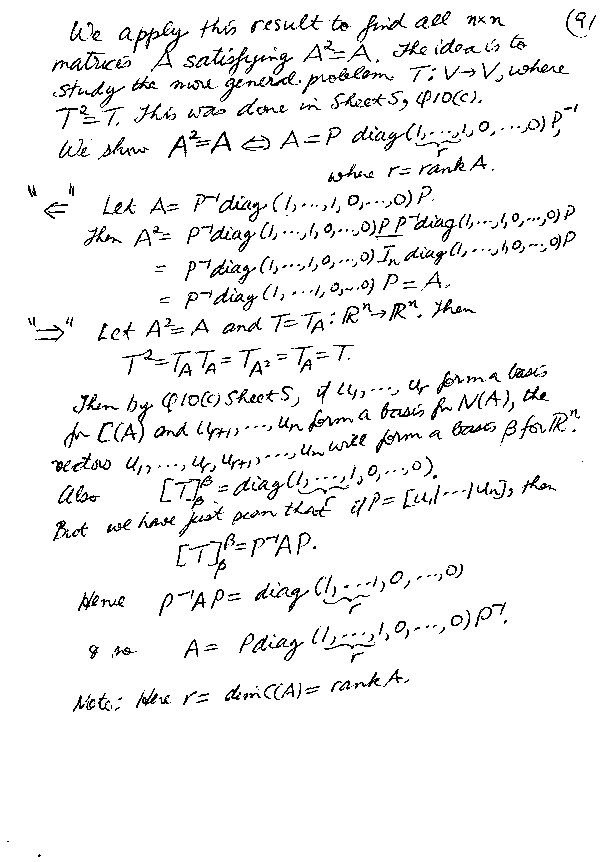 We apply this result to find all n×n (91
matrices A satisfying A²=A. The idea is to
study the more general problem T: V→V, where
T²=T. This was done in Sheet 5, Q10(c).
We show A²=A ⇔ A=P diag(1,...,1,0,...,0)P⁻¹,
r
where r=rank A.
"⇐" Let A= P⁻¹diag(1,...,1,0,...,0)P.
Then A²= P⁻¹diag(1,...,1,0,...,0)P P⁻¹diag(1,...,1,0,...,0)P
= P⁻¹diag(1,...,1,0,...,0) Iₙ diag(1,...,1,0,...,0)P
= P⁻¹diag(1,...1,0,...,0) P = A.
"⇒" Let A²=A and T=T_A: ℝⁿ→ℝⁿ. Then
T²=T_A T_A= T_A²=T_A=T.
Then by Q10(c) Sheet 5, if u₁,..., uᵣ form a basis
for C(A) and uᵣ₊₁,..., uₙ form a basis for N(A), the
vectors u₁,..., uᵣ, uᵣ₊₁,..., uₙ will form a basis β for ℝⁿ.
Also [T]ᵝᵦ = diag(1,...,1,0,...,0).
r
But we have just seen that if P= [u₁|...|uₙ], then
[T]ᵝᵦ=P⁻¹AP.
Hence P⁻¹AP= diag(1,...1,0,...,0)
r
& so A= Pdiag(1,...,1,0,...,0)P⁻¹.
r
Note: Here r= dim C(A)= rank A.